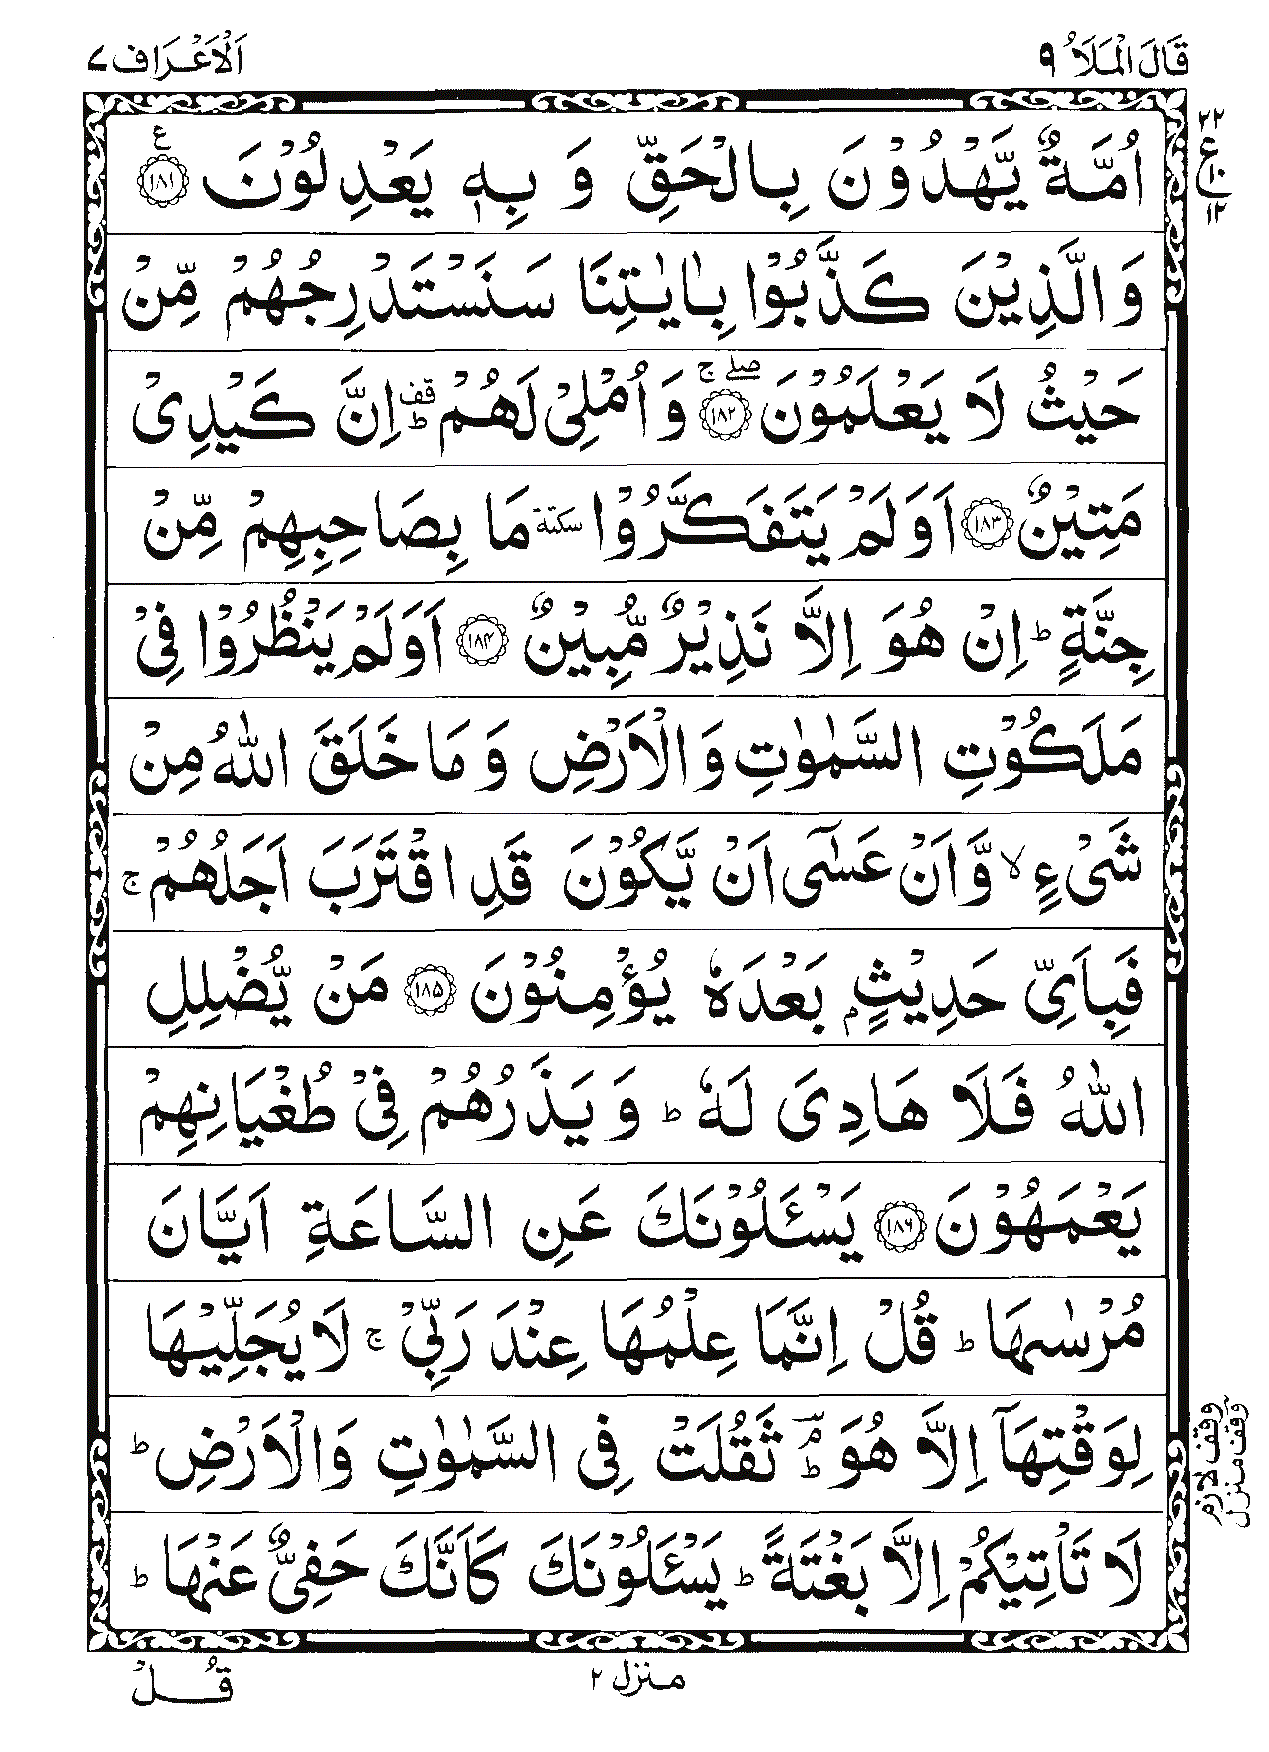 قَالَ الْمَلَاُ ٩
اَلْاَعْرَاف ٧
٢٢
ع
١٠
١٢
اُمَّةٌ يَّهْدُوْنَ بِالْحَقِّ وَ بِهٖ يَعْدِلُوْنَ ؏ ﴿١٨١﴾
وَالَّذِيْنَ كَذَّبُوْا بِاٰيٰتِنَا سَنَسْتَدْرِجُهُمْ مِّنْ
حَيْثُ لَا يَعْلَمُوْنَ ۖۚ ﴿١٨٢﴾ وَاُمْلِيْ لَهُمْ ؕقف اِنَّ كَيْدِيْ
مَتِيْنٌ ﴿١٨٣﴾ اَوَلَمْ يَتَفَكَّرُوْا سكتة مَا بِصَاحِبِهِمْ مِّنْ
جِنَّةٍ ؕ اِنْ هُوَ اِلَّا نَذِيْرٌ مُّبِيْنٌ ﴿١٨٤﴾ اَوَلَمْ يَنْظُرُوْا فِيْ
مَلَكُوْتِ السَّمٰوٰتِ وَالْاَرْضِ وَ مَا خَلَقَ اللّٰهُ مِنْ
شَيْءٍ ۙ وَّاَنْ عَسٰٓى اَنْ يَّكُوْنَ قَدِ اقْتَرَبَ اَجَلُهُمْ ۚ
فَبِاَيِّ حَدِيْثٍۭ بَعْدَهٗ يُؤْمِنُوْنَ ﴿١٨٥﴾ مَنْ يُّضْلِلِ
اللّٰهُ فَلَا هَادِيَ لَهٗ ؕ وَ يَذَرُهُمْ فِيْ طُغْيَانِهِمْ
يَعْمَهُوْنَ ﴿١٨٦﴾ يَسْـَٔلُوْنَكَ عَنِ السَّاعَةِ اَيَّانَ
مُرْسٰىهَا ؕ قُلْ اِنَّمَا عِلْمُهَا عِنْدَ رَبِّيْ ۚ لَا يُجَلِّيْهَا
لِوَقْتِهَآ اِلَّا هُوَ ؔۘؕ ثَقُلَتْ فِي السَّمٰوٰتِ وَالْاَرْضِ ؕ
وقف لازم
وقف منزل
لَا تَاْتِيْكُمْ اِلَّا بَغْتَةً ؕ يَسْـَٔلُوْنَكَ كَاَنَّكَ حَفِيٌّ عَنْهَا ؕ
منزل ٢
قُلْ